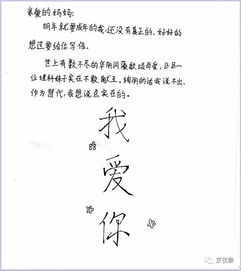 亲爱的妈妈:
明年就要成年的我,还没有真正的,好好的
想过要给你写信。
世上有数不尽的华丽词藻歌颂母爱,
一位理科妹子实在不敢献丑。绮丽的话我说不出,
作为替代,我想说点实在的。
我
爱
你
京城